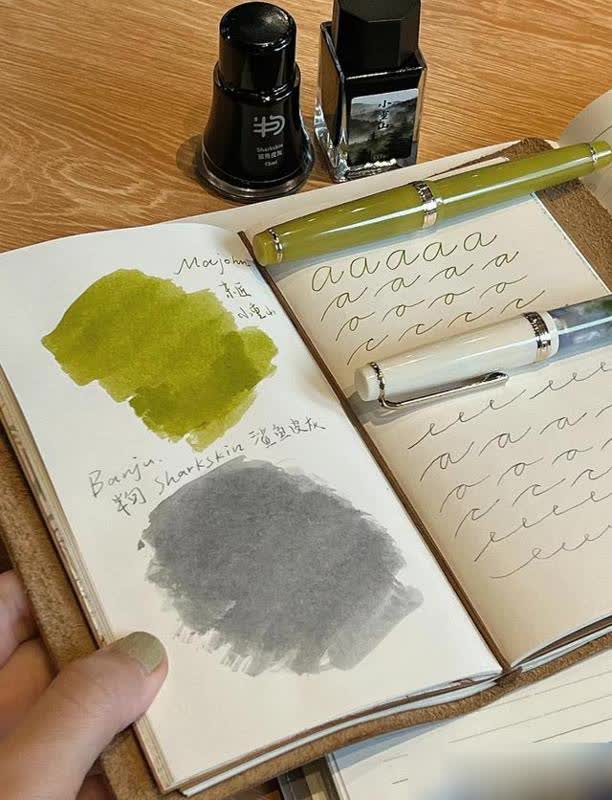 Sharkskin
鲨鱼皮灰
小重山
Majohn
末匠
小重山
Banju.
Sharkskin 鲨鱼皮灰
a a a a a
a a a a
o o o o
c c c c
e e e e e e
a a a a
o o o o
c c c c
e e e e e
e e e e e